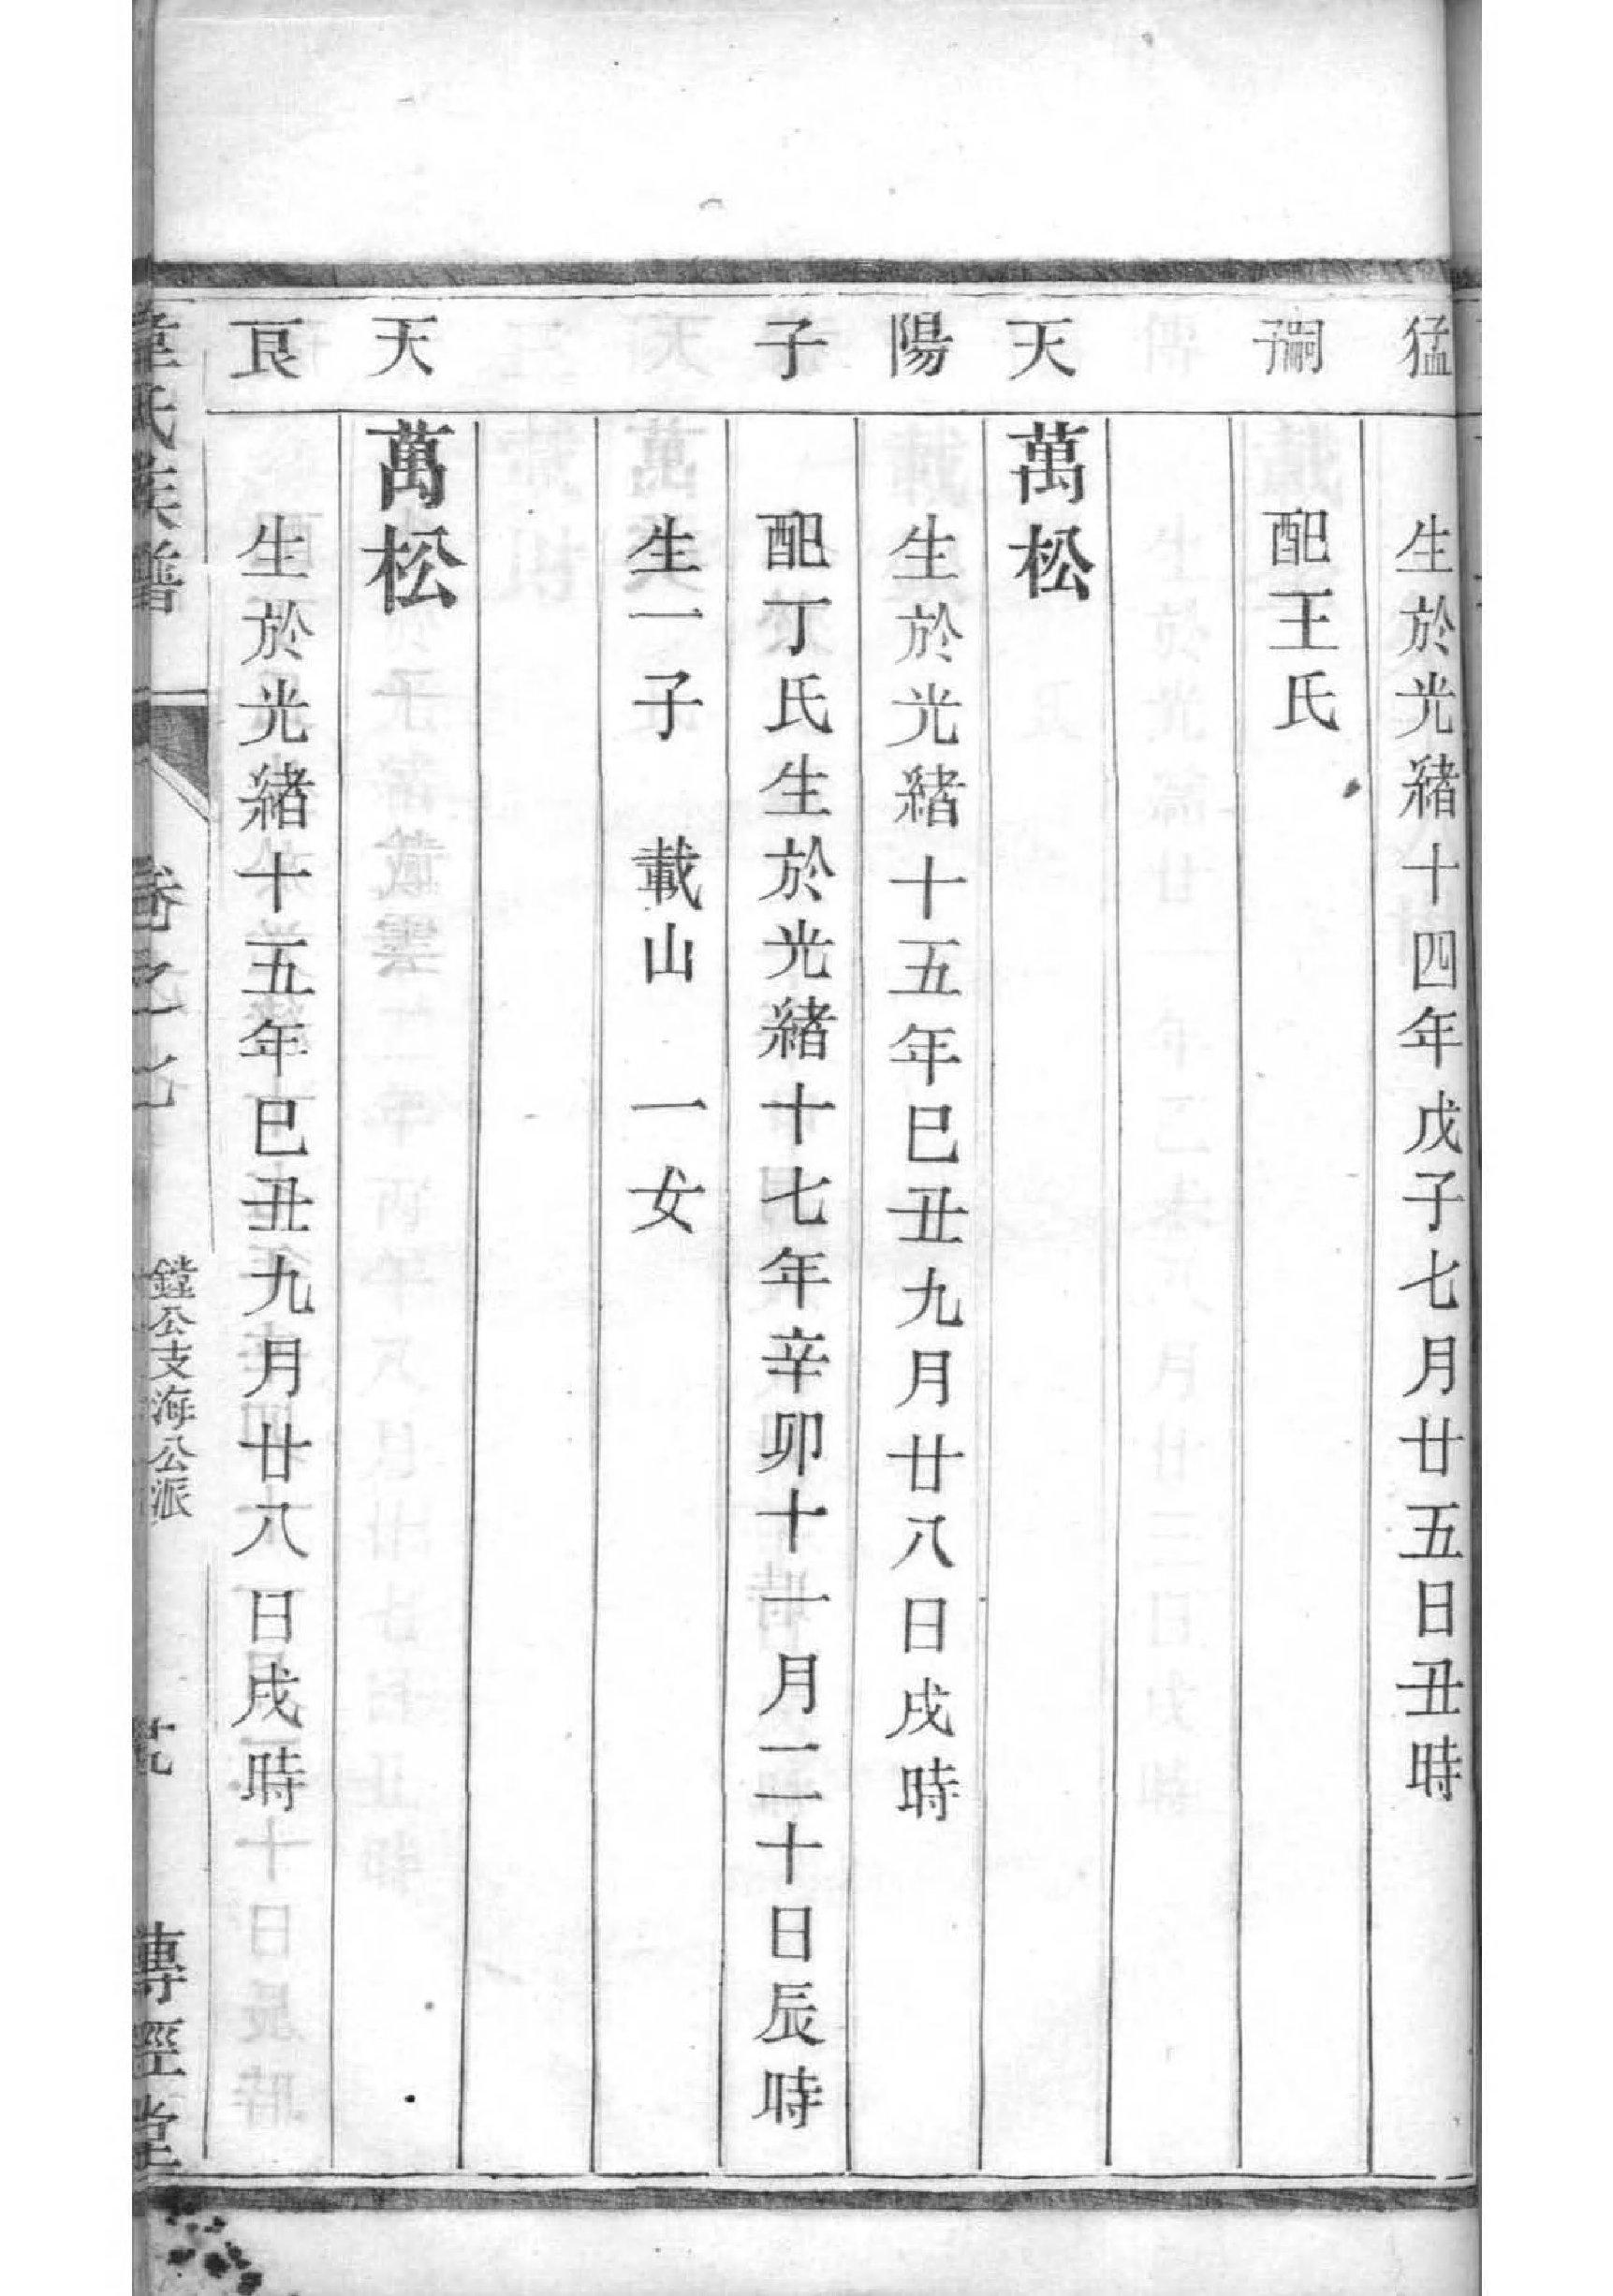 猛 生於光緒十四年戊子七月廿五日丑時
嗣子 配王氏
天 萬松
陽 生於光緒十五年巳丑九月廿八日戌時
子 配丁氏生於光緒十七年辛卯十一月二十日辰時
生一子 載山 一女
天 萬松
良 生於光緒十五年巳丑九月廿八日戌時
氏族譜 卷之七 鏜公支海公派 傳經堂